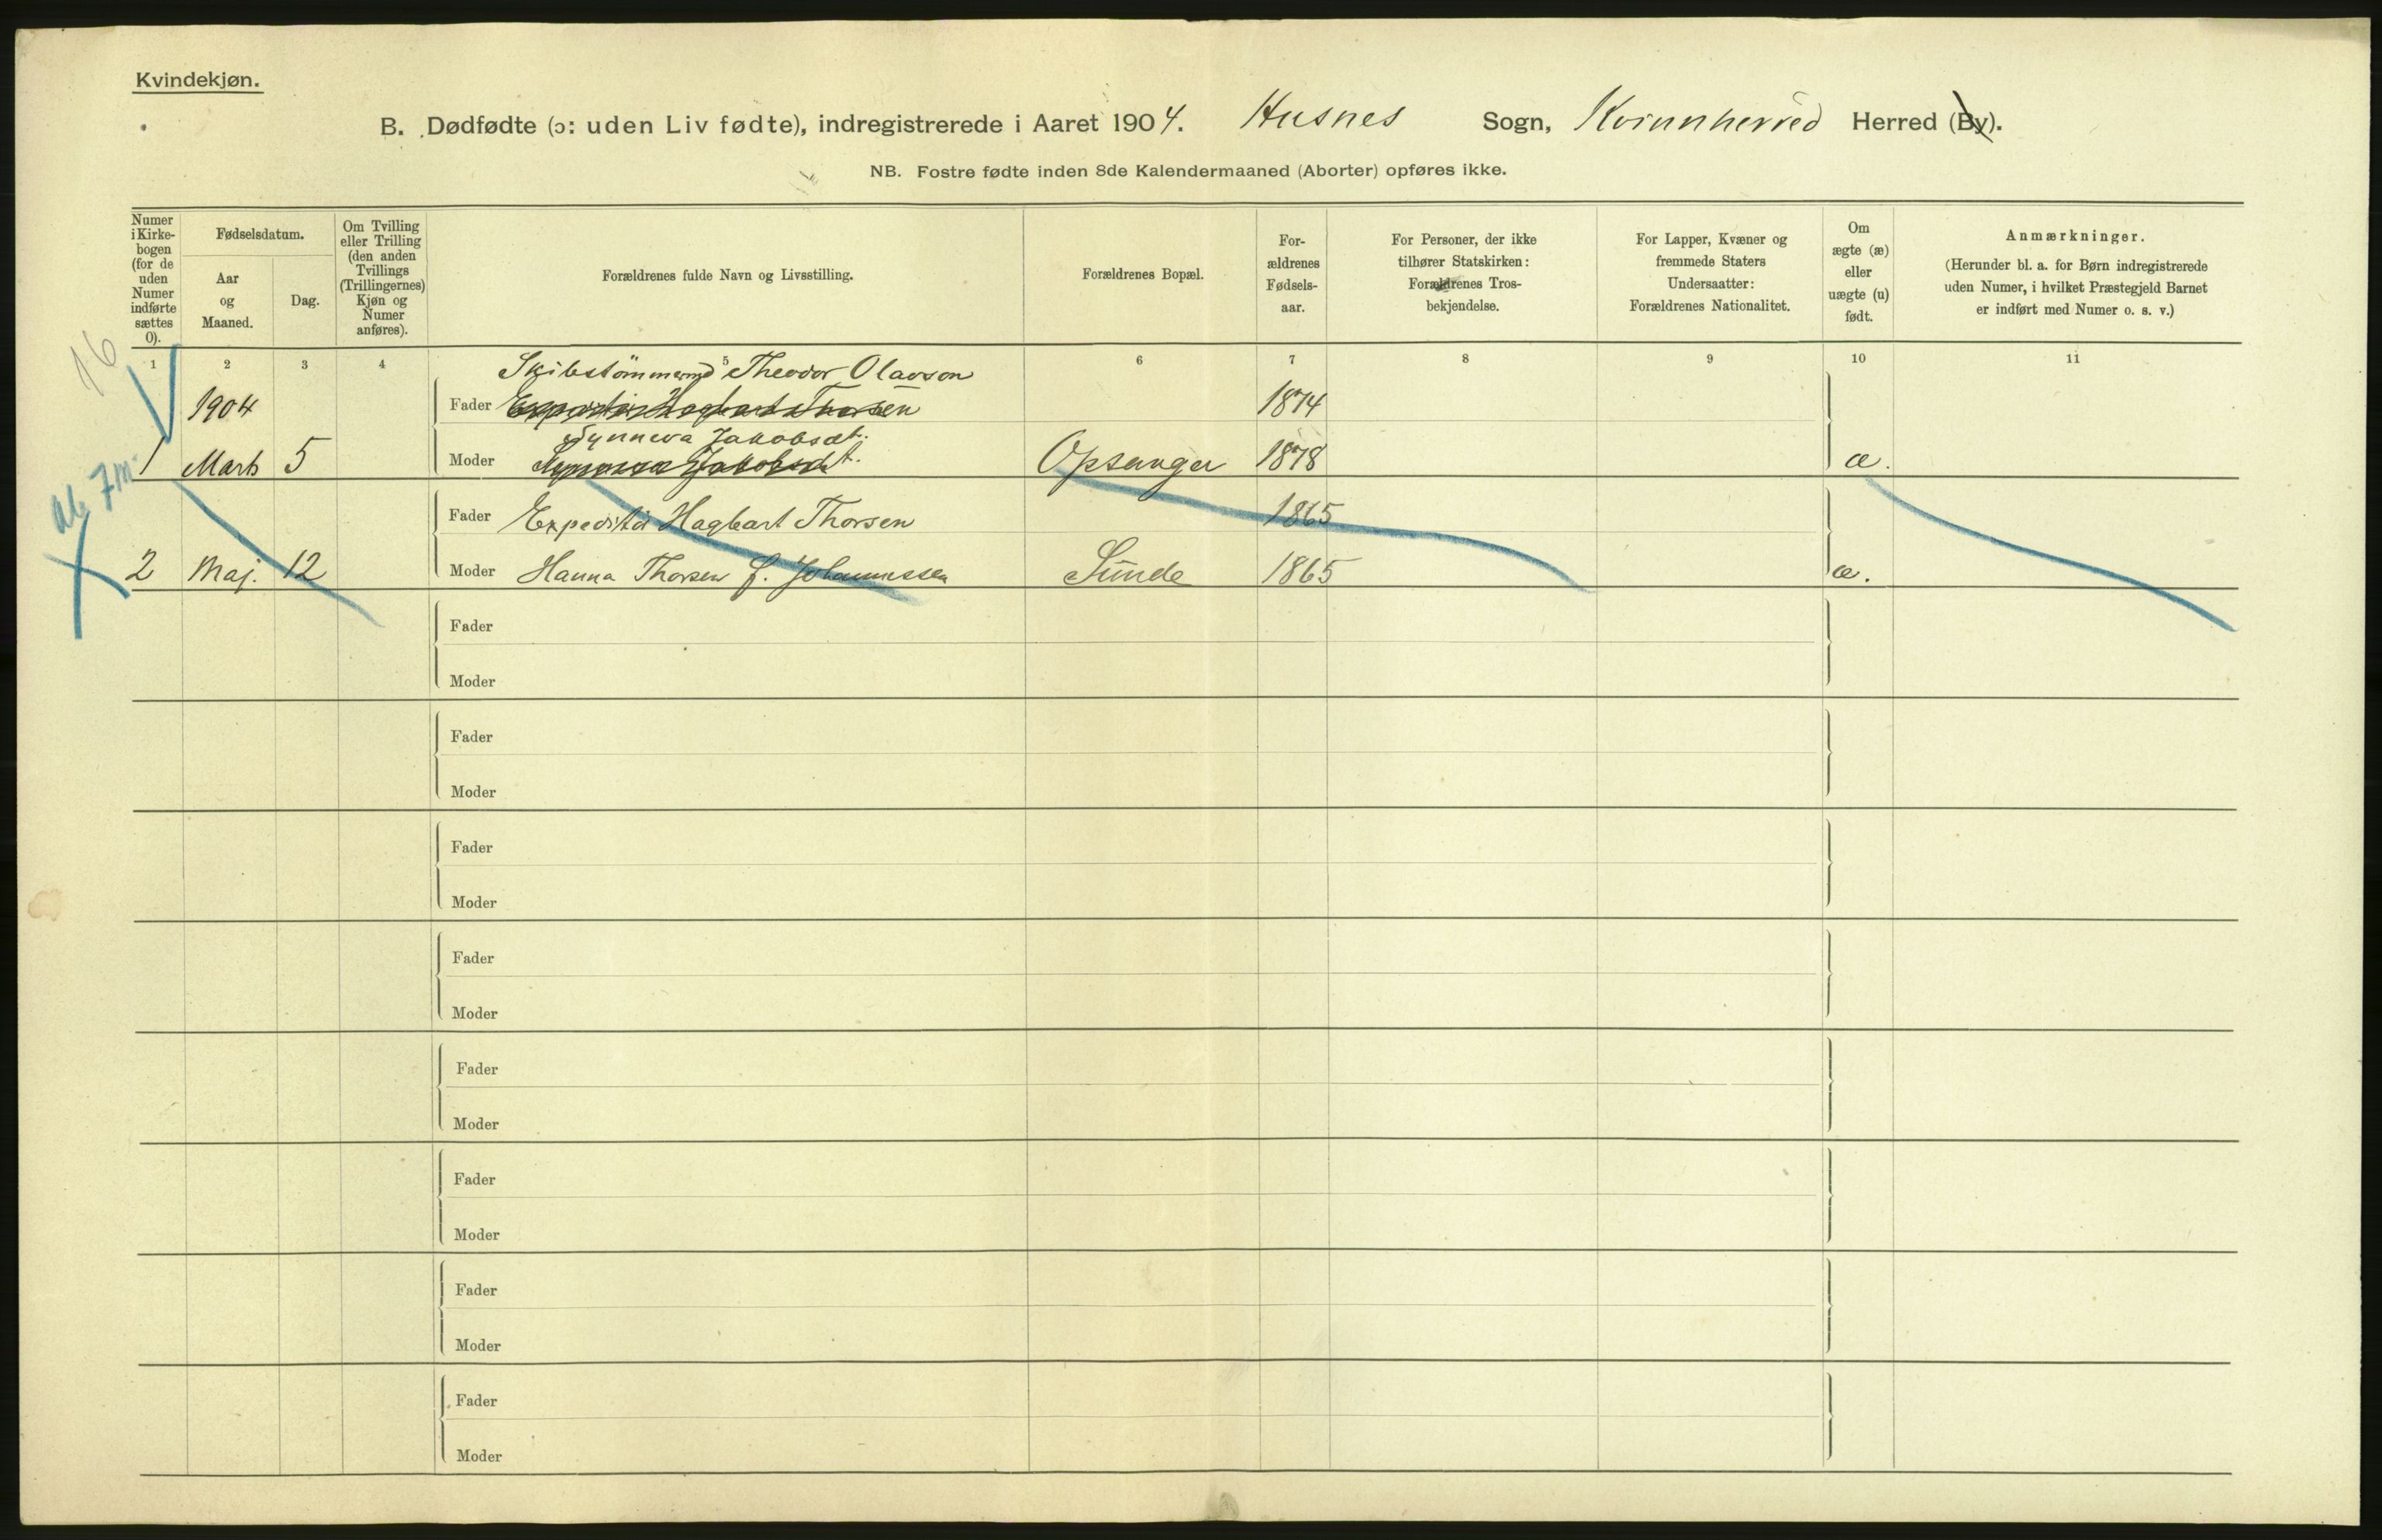 Kvindekjøn.
B. Dødfødte (ɔ: uden Liv fødte), indregistrerede i Aaret 1904. Husnes Sogn, Kvinnherred Herred (By).
NB. Fostre fødte inden 8de Kalendermaaned (Aborter) opføres ikke.
Numer i Kirke- bogen (for de uden Numer indførte sættes 0).
Fødselsdatum.
Aar og Maaned.
Dag.
Om Tvilling eller Trilling (den anden Tvillings (Trillingernes) Kjøn og Numer anføres).
Forældrenes fulde Navn og Livsstilling.
Forældrenes Bopæl.
For- ældrenes Fødsels- aar.
For Personer, der ikke tilhører Statskirken: Forældrenes Tros- bekjendelse.
For Lapper, Kvæner og fremmede Staters Undersaatter: Forældrenes Nationalitet.
Om ægte (æ) eller uægte (u) født.
Anmærkninger.
(Herunder bl. a. for Børn indregistrerede uden Numer, i hvilket Præstegjeld Barnet er indført med Numer o. s. v.)
16
1 2 3 4 5 6 7 8 9 10 11
Theodor Olavson
1904 Fader Expeditør Hagbart Thorsen 1874
Synneva Jakobsdt.
1 Marts 5 Moder Synneva Jakobsdt. Opsanger 1878 æ.
ab 7 m.
Fader Expeditør Hagbart Thorsen 1865
2 Maj. 12 Moder Hanna Thorsen f. Johannessen Sunde 1865 æ.
Fader
Moder
Fader
Moder
Fader
Moder
Fader
Moder
Fader
Moder
Fader
Moder
Fader
Moder
Fader
Moder